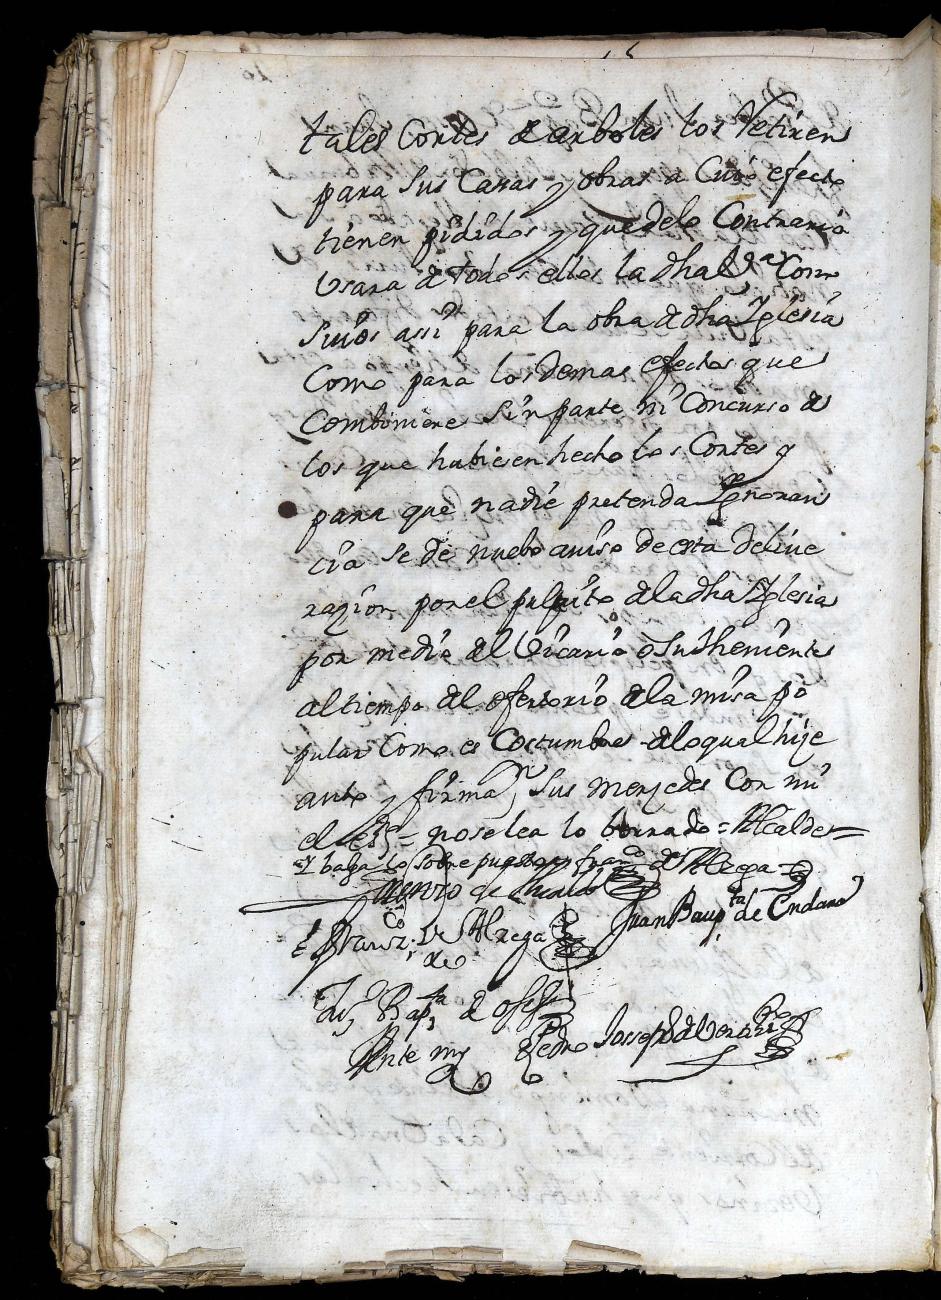 tales Cortes de arboles los Retiren
para sus Casas y obras a Cuio efecto
tienen pididos y que delo Contrario
Usara de todos ellos la dha Va Como
suios assi para la obra de dha Yglesia
Como para los demas efectos que
Combiniere sin parte ni Concurso de
los que hubiesen hecho los Cortes y
para que nadie pretenda Ygnoran
cia se de nuebo auiso de esta deliue
razion por el pulpito dela dha Yglesia
por medio del Vicario o su theniente
al tiempo del ofertorio de la misa po
pular Como es Costumbre de lo qual hize
auto y firmaon sus merzedes Con mi
el essno = no se lea lo borrado = Alcalde =
Y balga lo sobre puesto = franco de Alzega
de
Franco de Alzega Juan Baupta de Endara
Bapta de
Ante my Pedro Josseph de